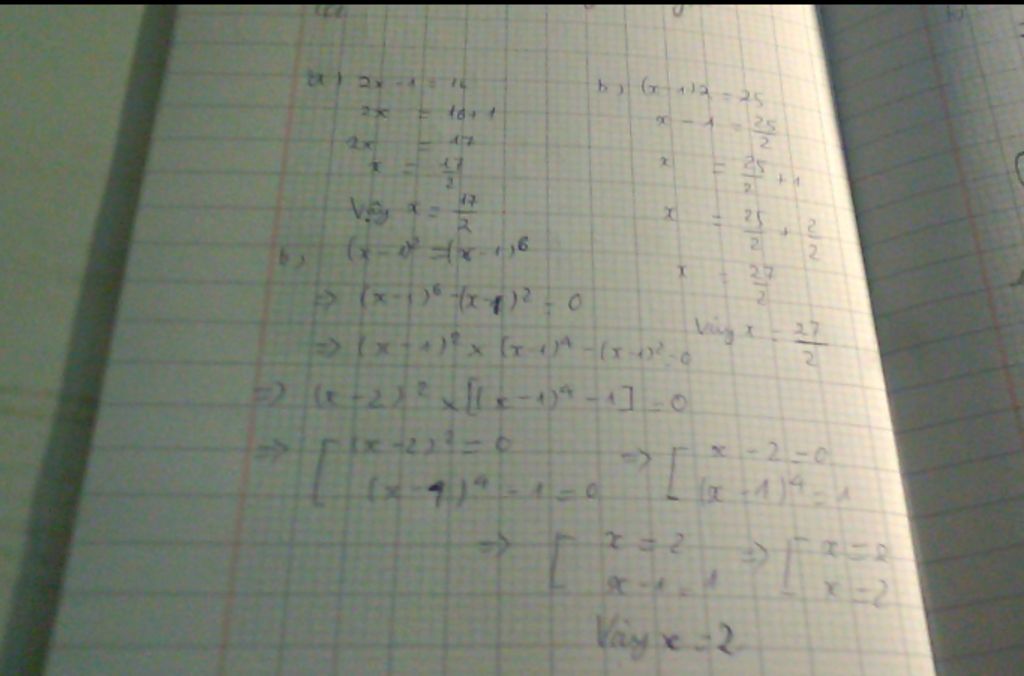 a) 2x - 1 = 16
2x = 16 + 1
2x = 17
x = 17/2
Vậy x = 17/2
b, (x - 1)2 = 25
x - 1 = 25/2
x = 25/2 + 1
x = 25/2 + 2/2
x = 27/2
Vậy x = 27/2
b, (x - 1)² = (x - 1)⁶
=> (x - 1)⁶ - (x - 1)² = 0
=> (x - 1)² x (x - 1)⁴ - (x - 1)² = 0
=> (x - 2)² x [(x - 1)⁴ - 1] = 0
=> [ (x - 2)² = 0 => [ x - 2 = 0
(x - 1)⁴ - 1 = 0 (x - 1)⁴ = 1
=> [ x = 2 => [ x = 2
x - 1 = 1 x = 2
Vậy x = 2